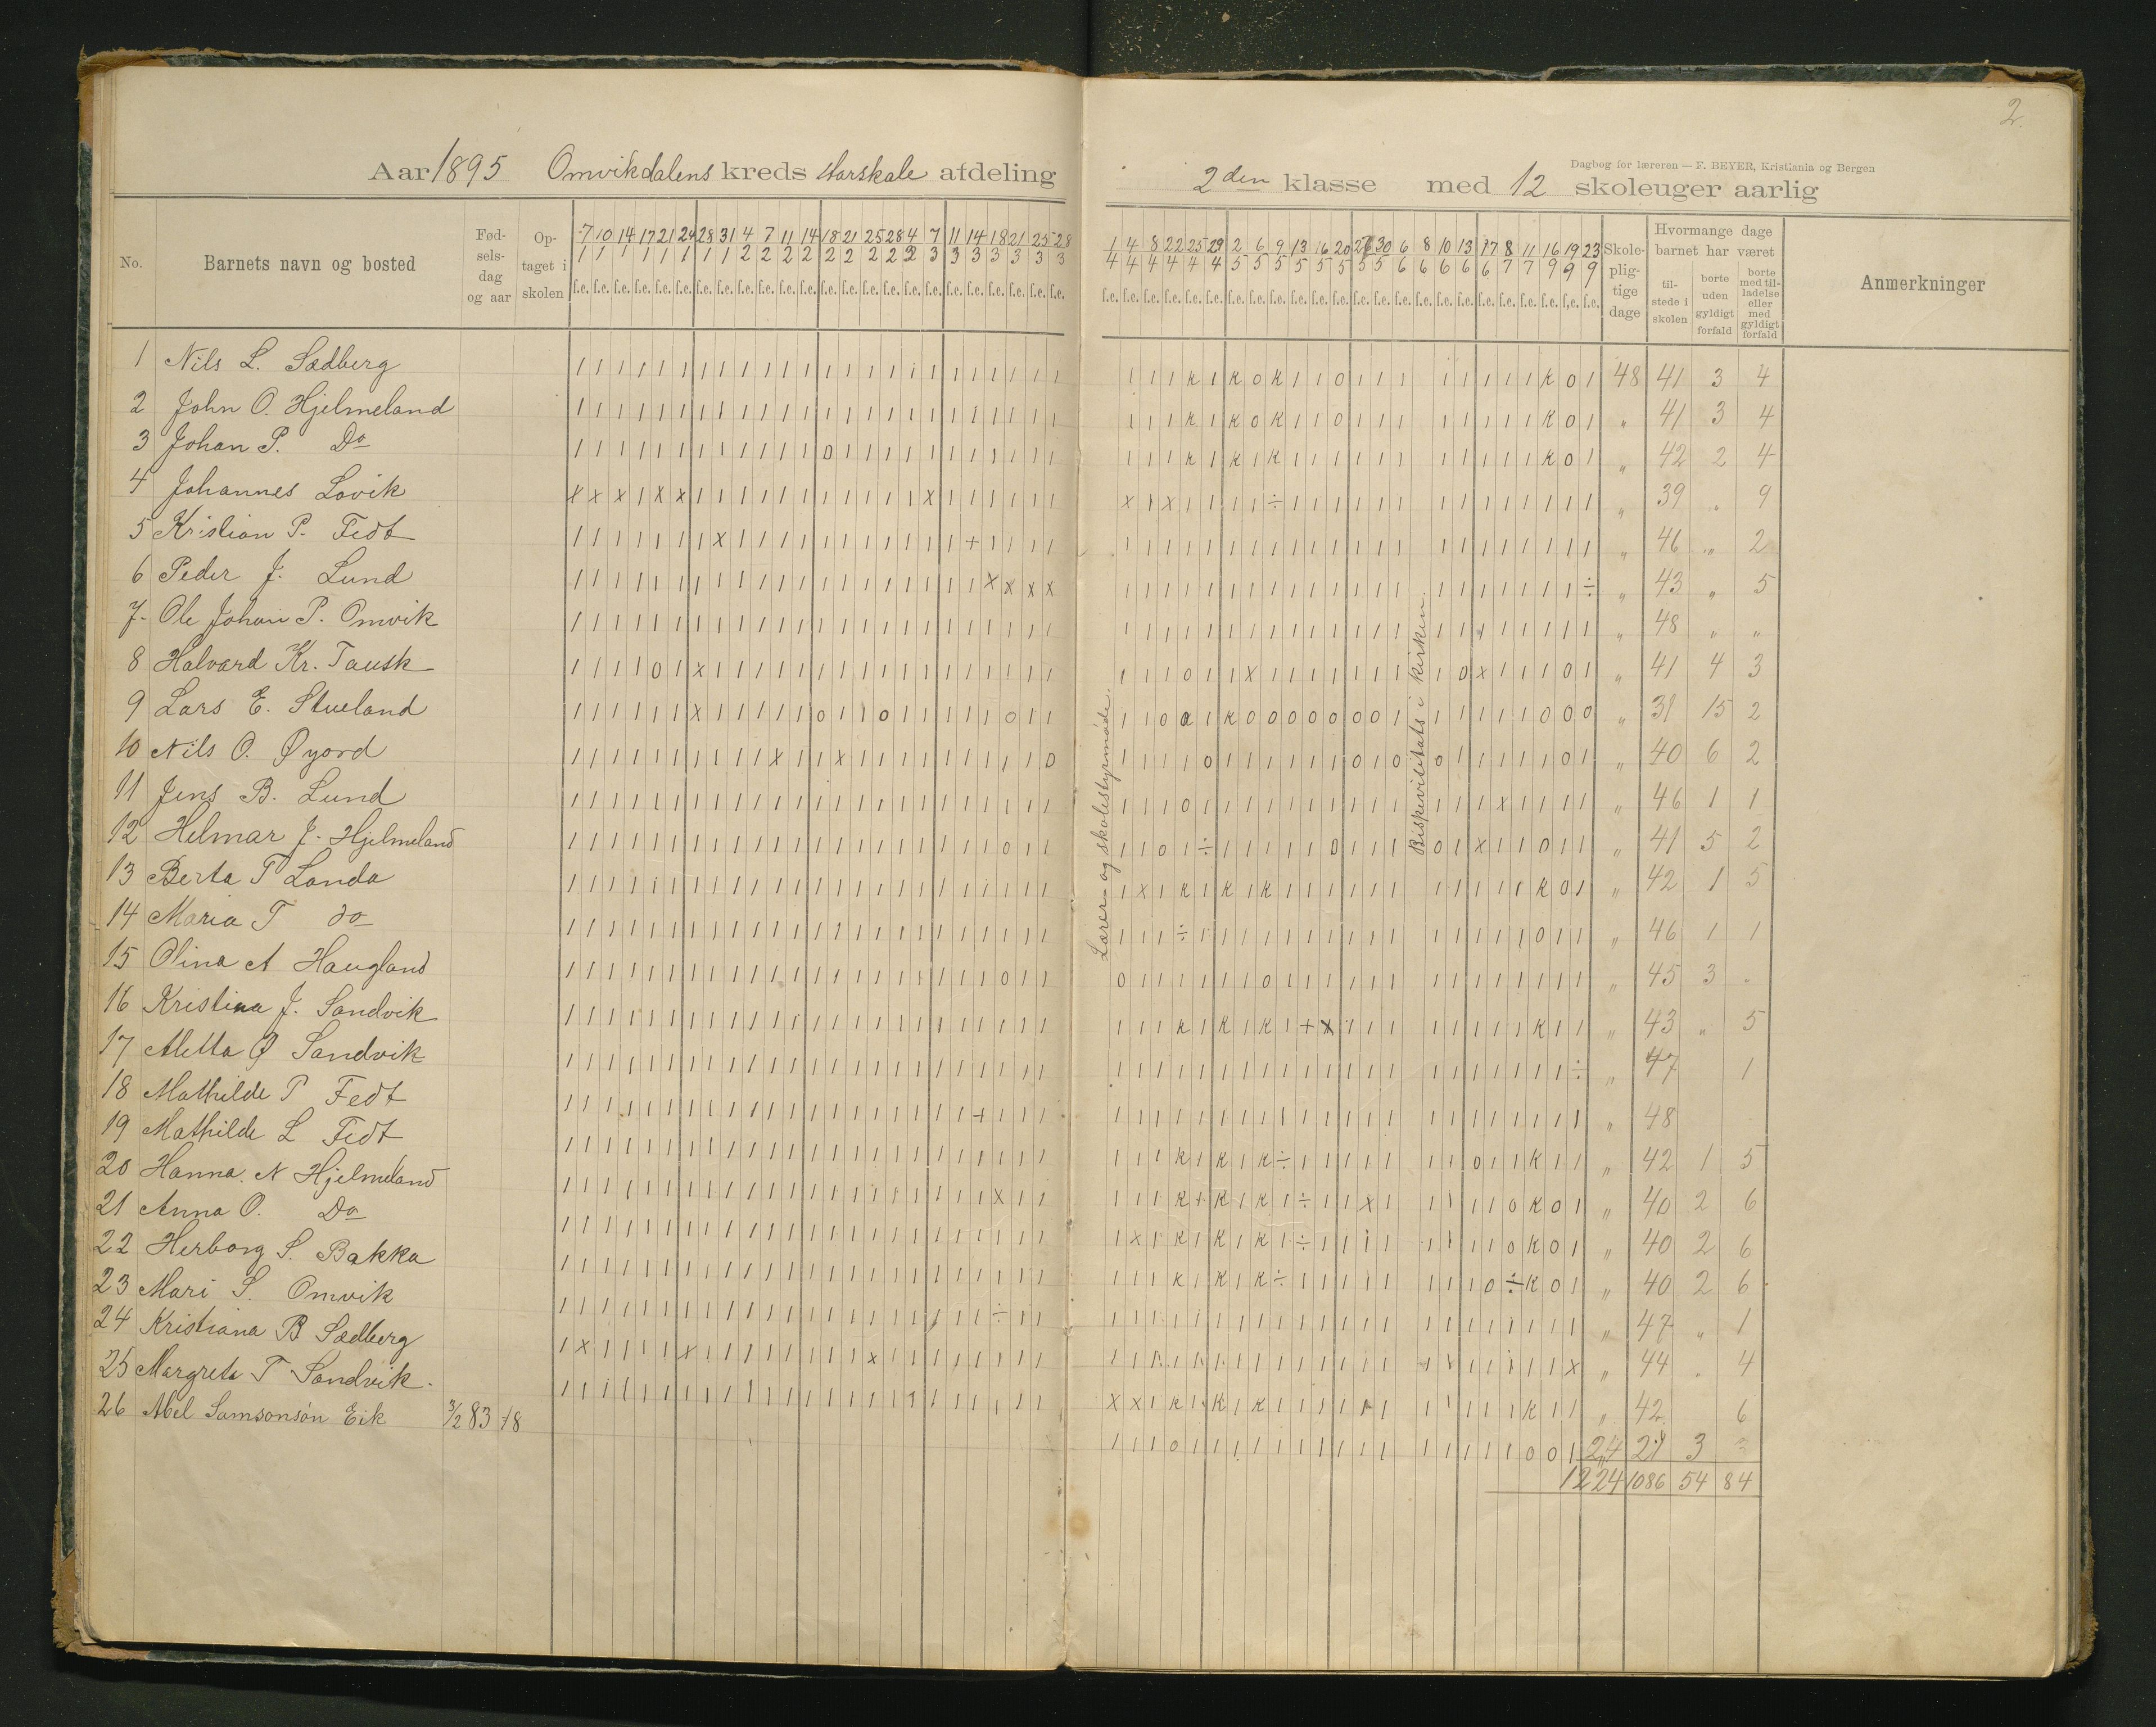 2.
Aar 1895 Omvikdalens kreds storskole afdeling
Dagbog for læreren — F. BEYER, Kristiania og Bergen
2den klasse med 12 skoleuger aarlig
No. Barnets navn og bosted Fød-selsdag og aar Op-taget i skolen
7/1 10/1 14/1 17/1 21/1 24/1 28/1 31/1 4/2 7/2 11/2 14/2 18/2 21/2 25/2 28/2 4/3 7/3 11/3 14/3 18/3 21/3 25/3 28/3
1/4 4/4 8/4 22/4 25/4 29/4 2/5 6/5 9/5 13/5 16/5 20/5 26/5 30/5 6/6 8/6 10/6 13/6 17/6 8/7 11/7 16/9 19/9 23/9
f.e. f.e. f.e. f.e. f.e. f.e. f.e. f.e. f.e. f.e. f.e. f.e. f.e. f.e. f.e. f.e. f.e. f.e. f.e. f.e. f.e. f.e. f.e. f.e.
f.e. f.e. f.e. f.e. f.e. f.e. f.e. f.e. f.e. f.e. f.e. f.e. f.e. f.e. f.e. f.e. f.e. f.e. f.e. f.e. f.e. f.e. f.e. f.e.
Skole-plig-tige dage
Hvormange dage barnet har været
til-stede i skolen
borte uden gyldigt forfald
borte med til-ladelse eller med gyldigt forfald
Anmerkninger
1 Nils L. Sædberg 48 41 3 4
2 John O. Hjelmeland " 41 3 4
3 Johan P. Do " 42 2 4
4 Johannes Lovik " 39 " 9
5 Kristian P. Fedt " 46 " 2
6 Peder J. Lund " 43 " 5
7. Ole Johan P. Omvik " 48 " "
8 Halvard Kr. Tausk " 41 4 3
9 Lars E. Stueland " 31 15 2
10 Nils O. Øyord " 40 6 2
11 Jens B. Lund " 46 1 1
12 Helmar J. Hjelmeland " 41 5 2
13 Berta T Landa " 42 1 5
14 Maria T do " 46 1 1
15 Olina A Haugland " 45 3 "
16 Kristina J. Sandvik " 43 " 5
17 Aletta Ø Sandvik " 47 1
18 Mathilde P Fedt " 48
19 Mathilde L Fedt " 42 1 5
20 Hanna. N Hjelmeland " 40 2 6
21 Anna O. Do " 40 2 6
22 Herborg S. Bakka " 40 2 6
23 Mari S. Omvik " 47 " 1
24 Kristiana B Sædberg " 44 " 4
25 Margreta T Sandvik. " 42 6
26 Abel Samsonsøn Eik 3/2 83 1/8 24 21 3
1224 1086 54 84
Lærer- og skolestyrmøde.
Bispevisitats i kirken.